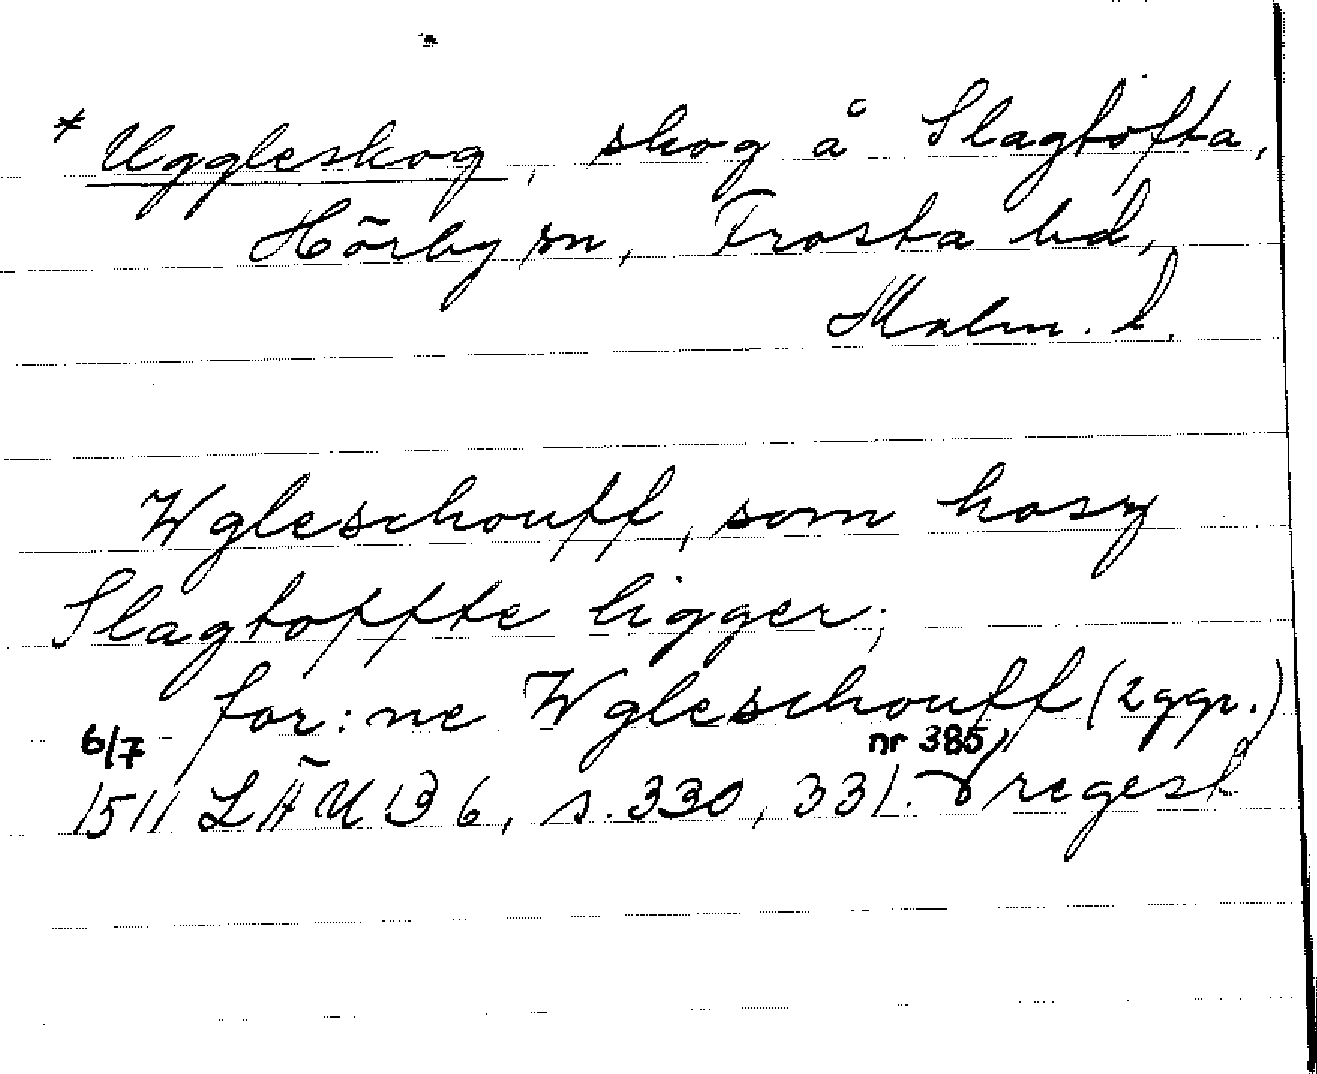 * Uggleskog, skog å Slagtofta,
Hörby sn, Frosta hd,
Malm. l.
Wgleschouff, som hosz
Slagtoffte ligger;
for:ne Wgleschouff (2 ggr.)
6/7 nr 385,
1511 LÄUB 6, s. 330, 331. regest